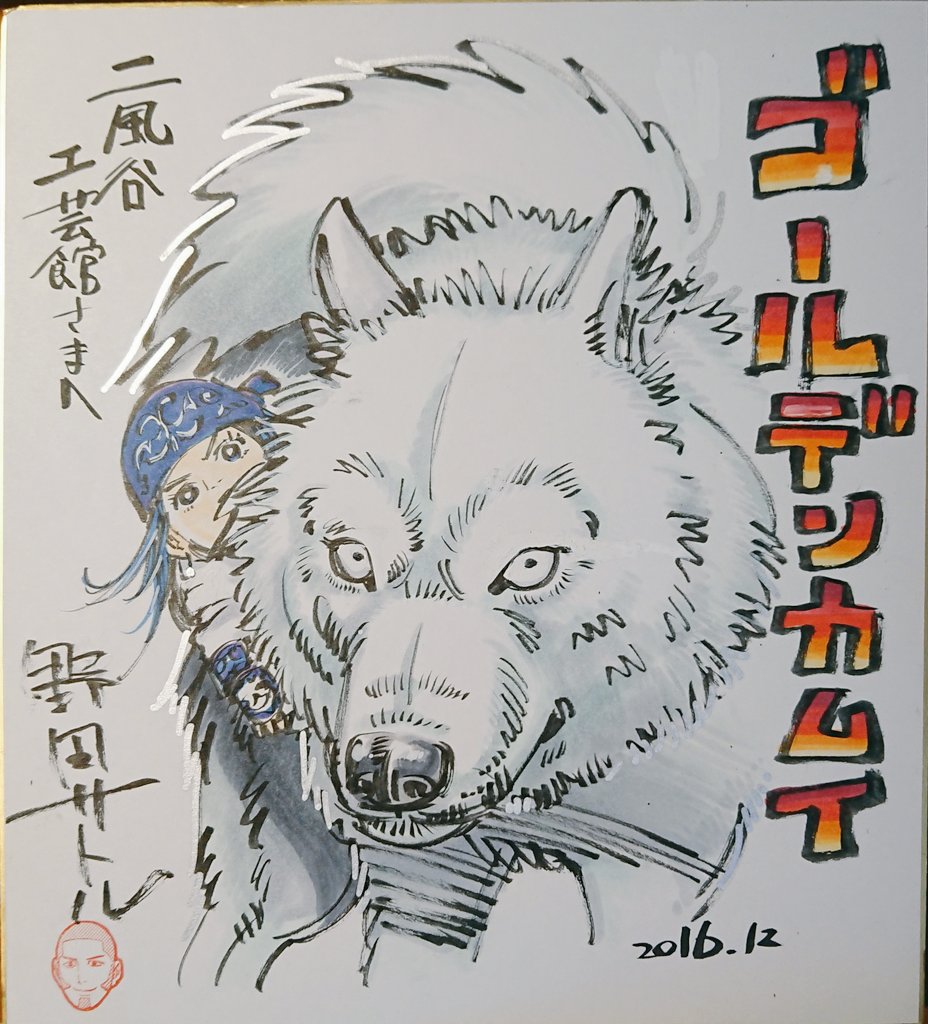 ゴールデンカムイ
二風谷
工芸館さまへ
野田サトル
2016.12